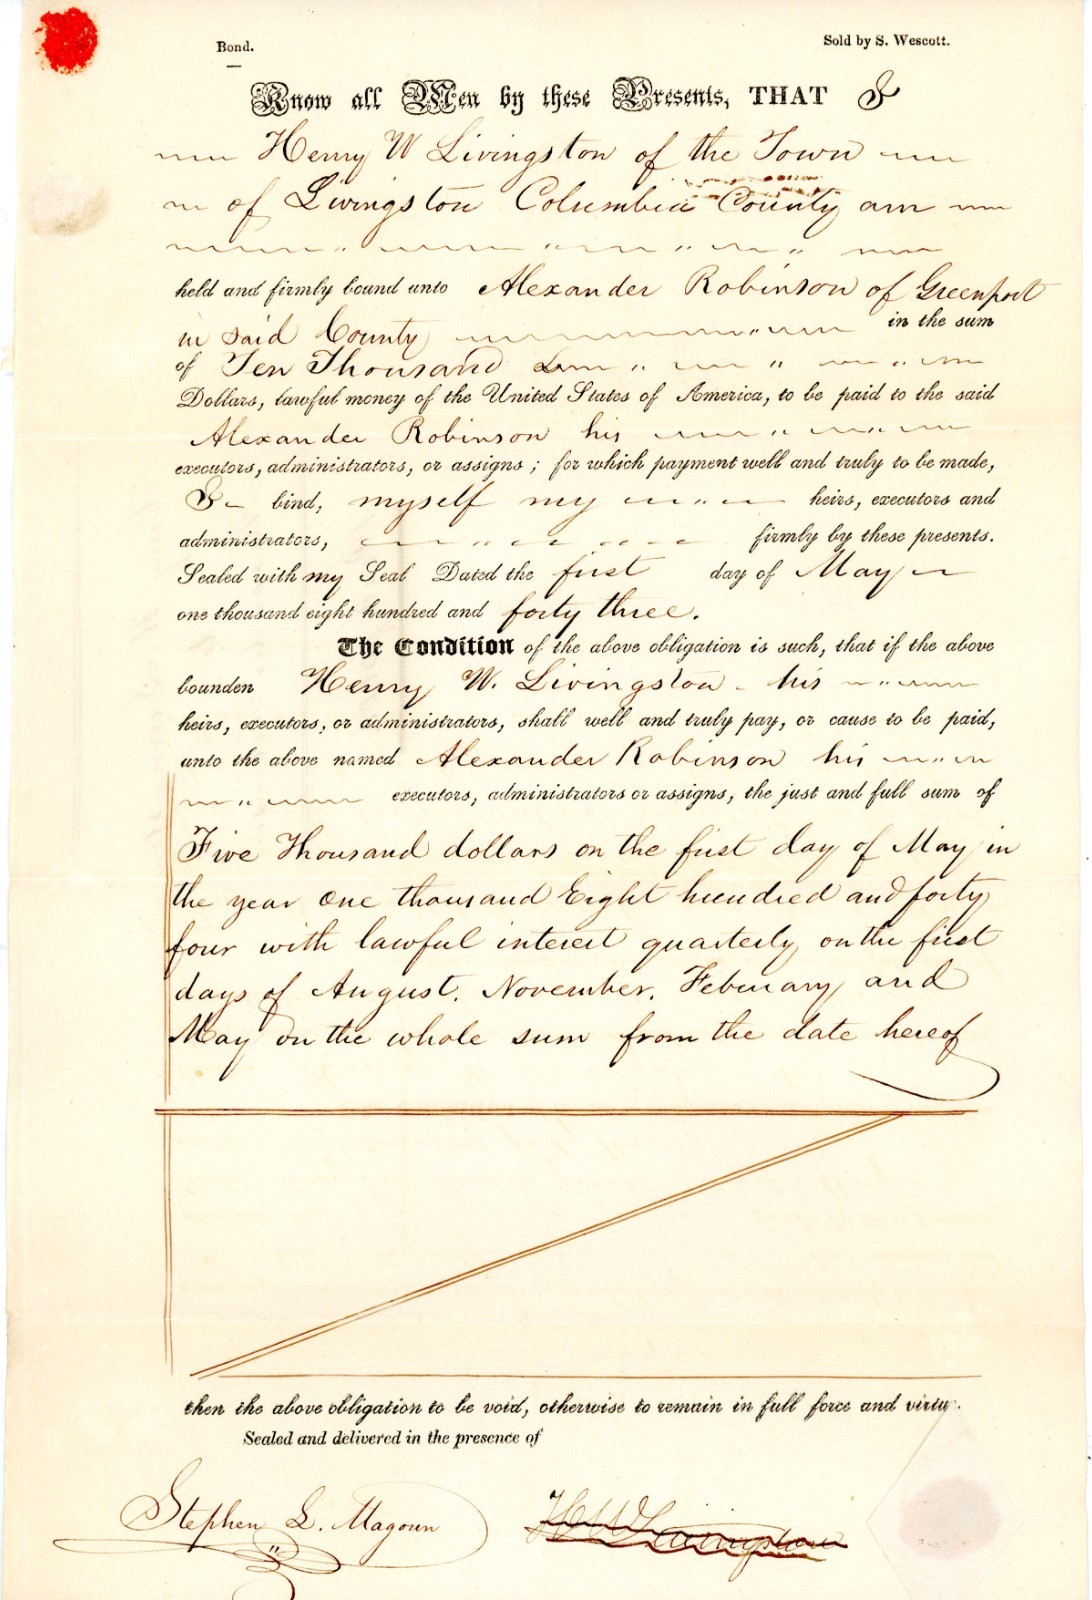 Bond.
Sold by S. Wescott.
Know all Men by these Presents, THAT I
Henry W Livingston of the Town
of Livingston Columbia County am
held and firmly bound unto Alexander Robinson of Greenport
in said County in the sum
of Ten Thousand
Dollars, lawful money of the United States of America, to be paid to the said
Alexander Robinson his
executors, administrators, or assigns; for which payment well and truly to be made,
I bind, myself my heirs, executors and
administrators, firmly by these presents.
Sealed with my Seal Dated the first day of May
one thousand eight hundred and forty three.
The Condition of the above obligation is such, that if the above
bounden Henry W. Livingston his
heirs, executors, or administrators, shall well and truly pay, or cause to be paid,
unto the above named Alexander Robinson his
executors, administrators or assigns, the just and full sum of
Five Thousand dollars on the first day of May in
the year one thousand Eight hundred and forty
four with lawful interest quarterly on the first
days of August, November, February and
May on the whole sum from the date hereof
then the above obligation to be void, otherwise to remain in full force and virtu.
Sealed and delivered in the presence of
Stephen L. Magoun
H W Livingston